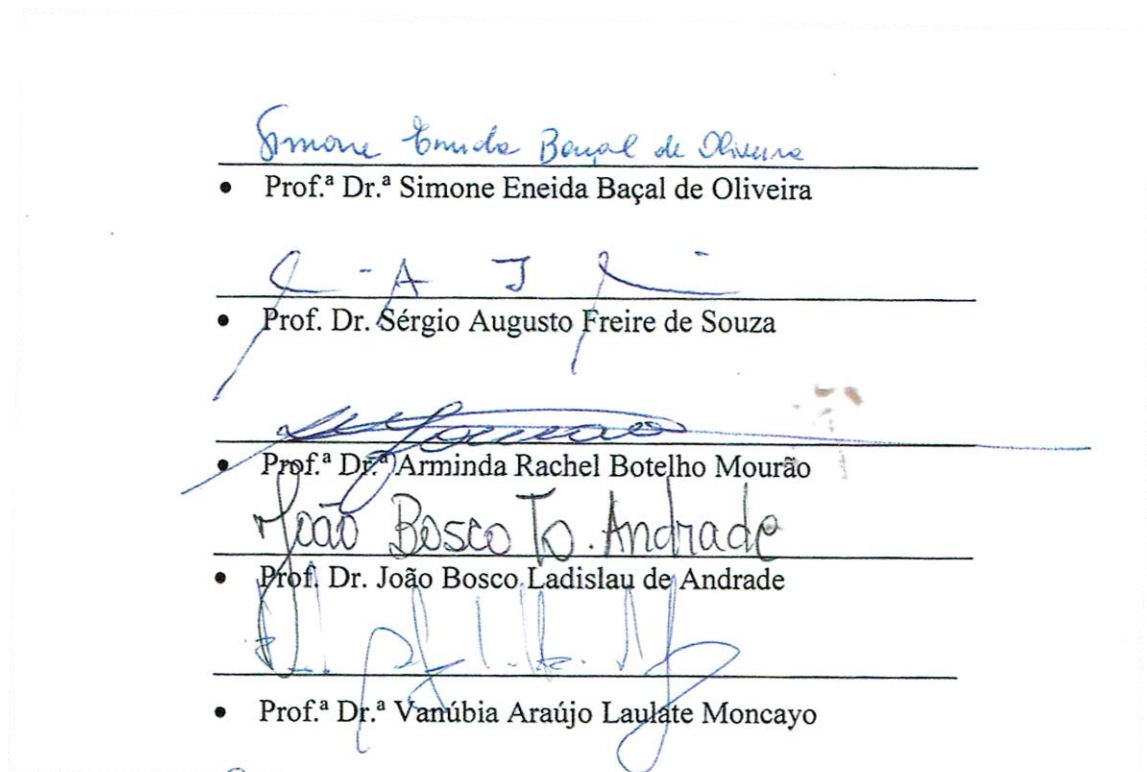 Simone Eneida Baçal de Oliveira
• Prof.ª Dr.ª Simone Eneida Baçal de Oliveira
• Prof. Dr. Sérgio Augusto Freire de Souza
• Prof.ª Dr.ª Arminda Rachel Botelho Mourão
João Bosco Andrade
• Prof. Dr. João Bosco Ladislau de Andrade
• Prof.ª Dr.ª Vanúbia Araújo Laulate Moncayo